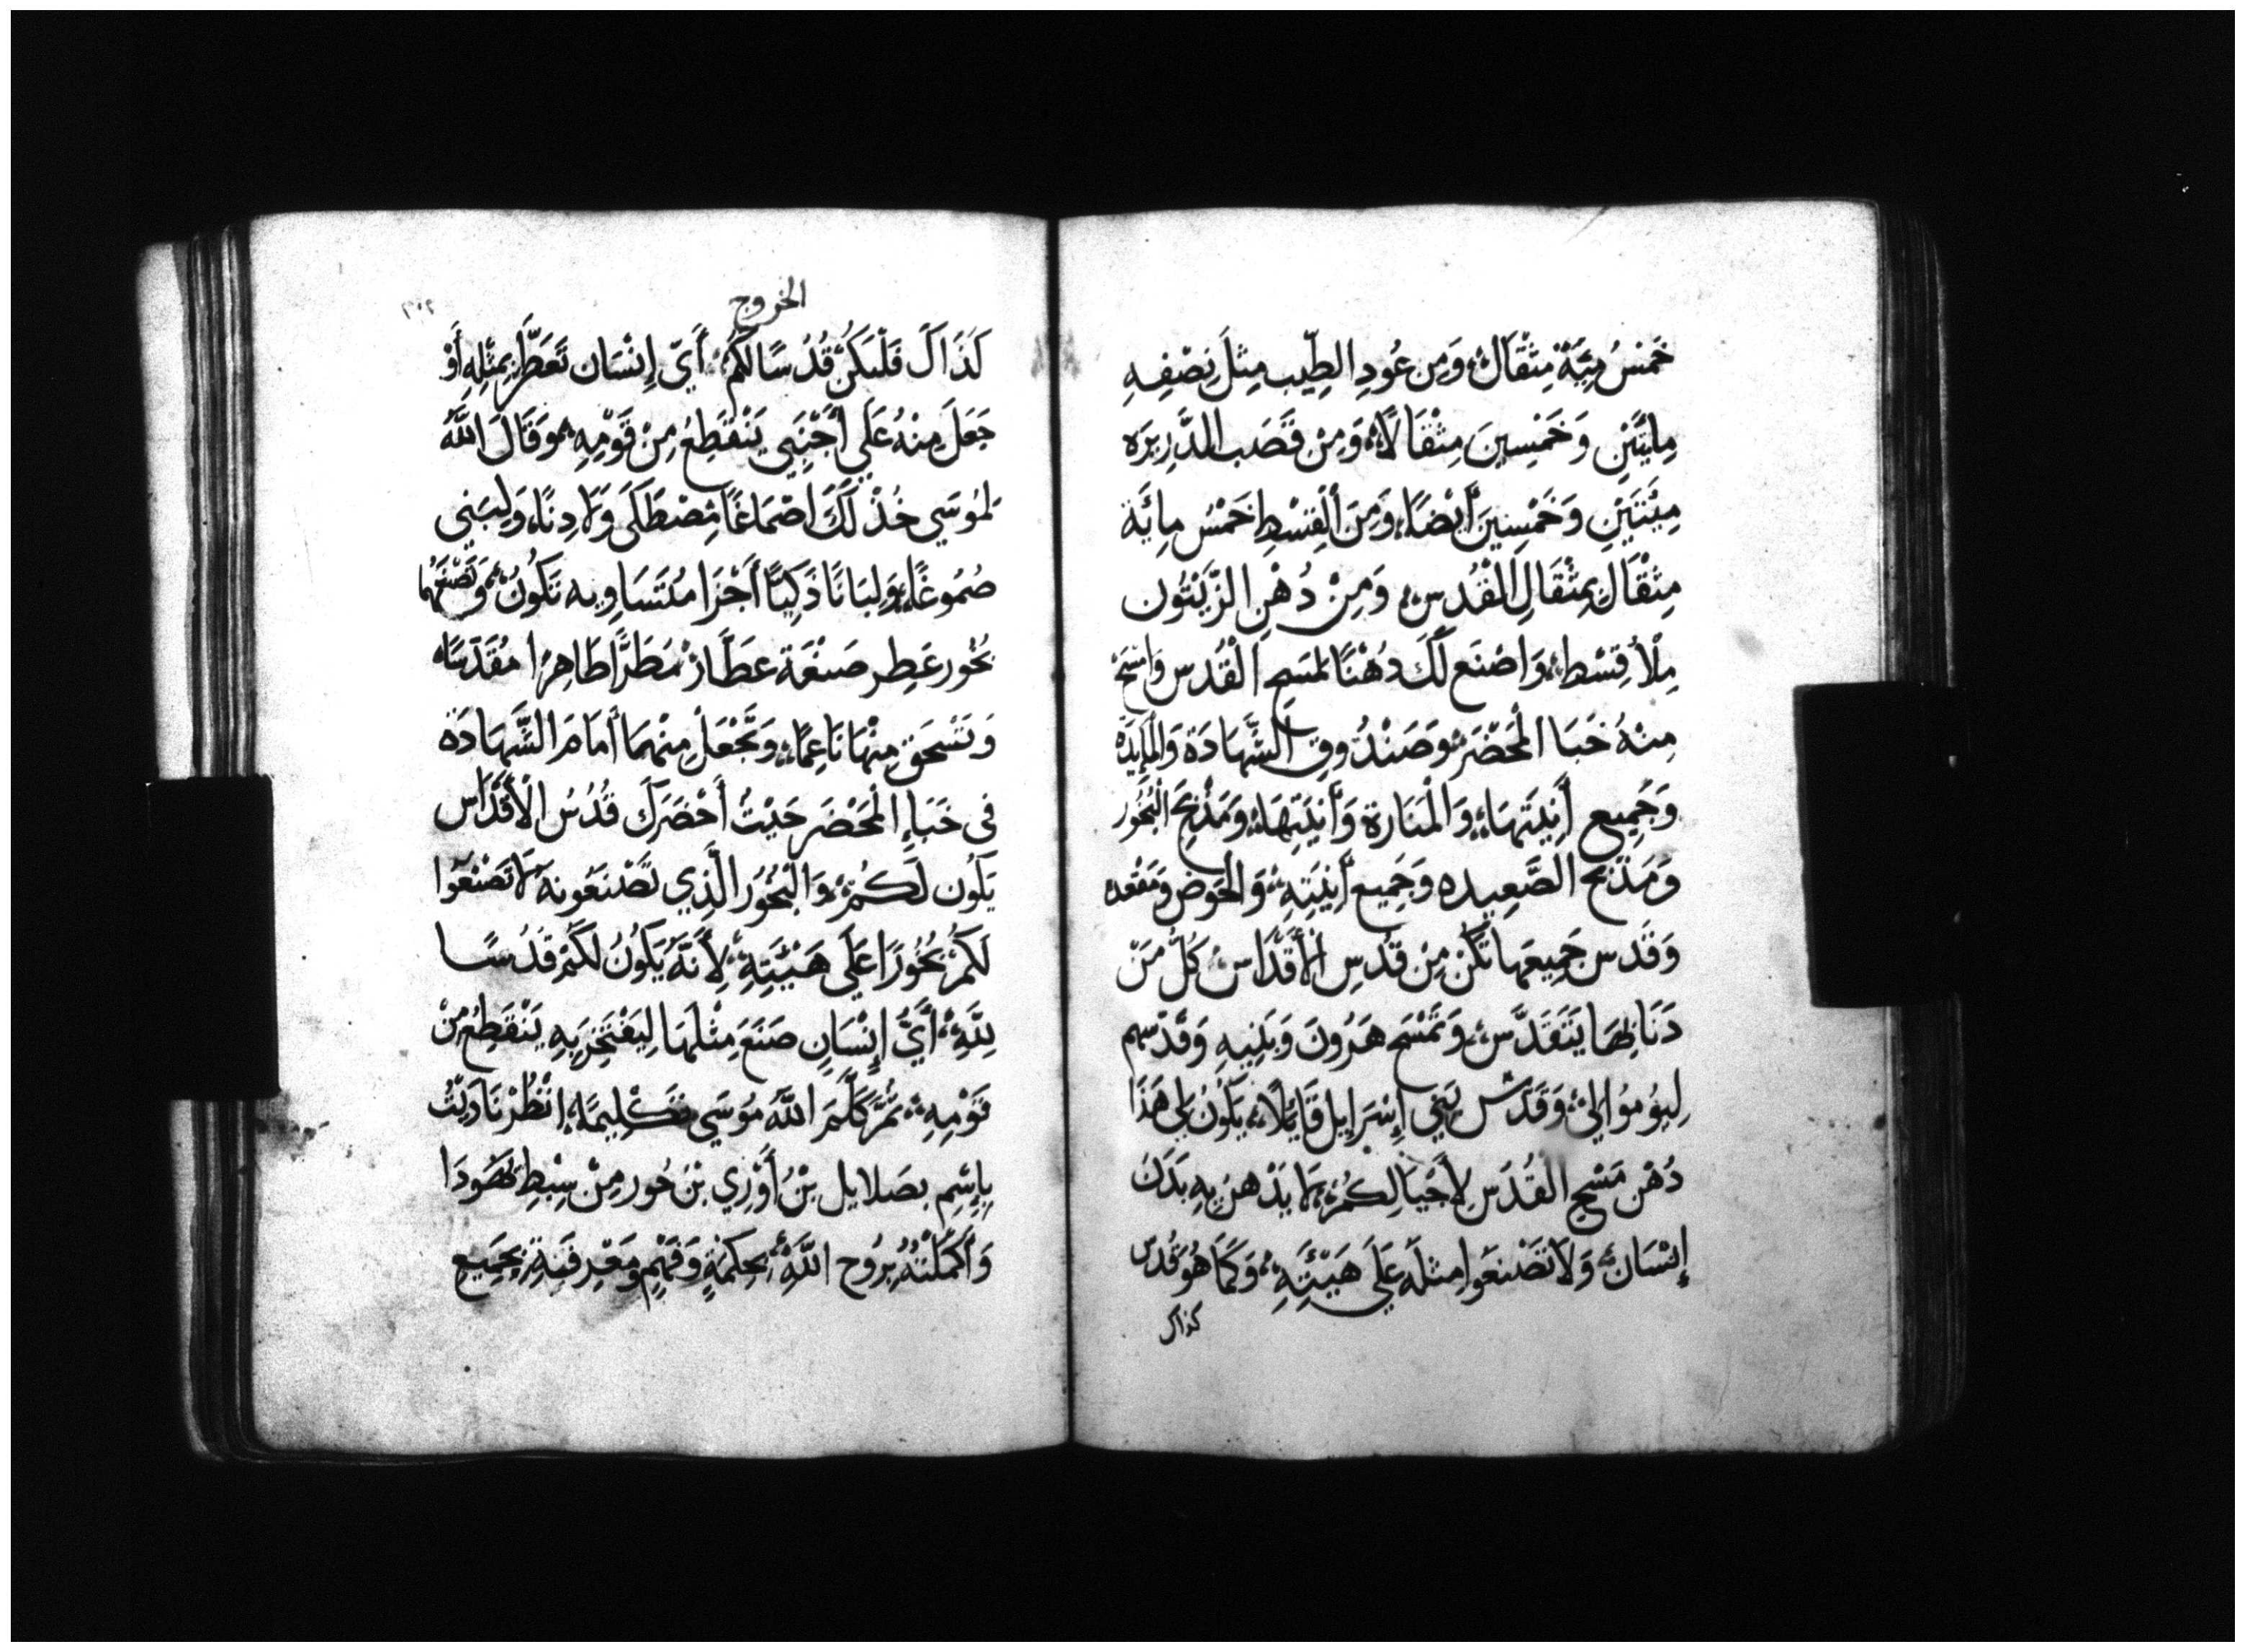 خَمْسُ مِيَّةٍ مِثْقَالٍ، وَمِن عُودِ الطِّيب مِثْلَ نِصْفِهِ
مِايَتَيْنِ وَخَمْسِينَ مِثْقَالاً، وَمِنْ قَصَب الدَّرِيرَه
مِيتَتَيْنِ وَخَمْسِينَ أَيْضًا، وَمِنَ القِسْطِ خَمْسُ مِائَة
مِثْقَال بِمِثْقَالِ المَقْدُس، وَمِنْ دُهْنِ الزَّيْتُون
مِلْأ قِسْط، وَاصْنَع لَكَ دُهْنًا لمَسَحِ القُدس وَامْسَحْ
مِنْهُ خَبَا الْمَحْضَر، وَصَنْدُوق الشَّهَادَة وَالمَايِدَة
وَجَمِيع أَنِيَتَهَا، وَالْمَنَارة وَأَنِيَتِهَا، وَمَذْبَحَ الْبُخُور
وَمَذْبَح الصَّعِيدِه وَجَمِيع أَنِيَتِهِ، وَالحَوض وَمَقْعَده
وَقَدس جَمِيعَهَا تَكُنْ مِنْ قُدسِ الأَقْدَاس، كُلّ مَنْ
دَنَا بِهَا يَتَقَدَّس، وَتَمْسَح هَرُونَ وَبَنِيهِ وَقَدّسهم
لِيَؤُمُوا اليّ، وَقَدّس بَنِي إِسْرَايِل قَايِلاً، يَكُونُ لِي هَذَا
دُهْن مَسْحِ القُدَس لِأَجْيَالِكُمْ، لَا يَدْهن بِهِ بَدَن
إِنْسَان، وَلَا تَصْنَعُوا مِثلَه عَلَى هَيْئَتِهِ، وَكَمَا هُوَ قُدس
كذاك
الخروج
كَذَاكَ فَلْيَكُنْ قُدُسًا لَكُمْ، أَيّ إِنْسَان تَعَطَّر بِمِثْلِهِ أَوْ
جَعَلَ مِنْهُ عَلَى أَجْنَبِي يَنْقَطِعُ مِنْ قَوْمِهِ، وَقَالَ اللَّهُ
لمُوسَي خُذْ لَكَ اصْمَاغًا مِصْطَكَى وَلَادِنًا، وَلِبَنِي
صُمُوغًا، وَلِبَانًا ذَكِيًّا أَجْزَا مُتَسَاوِيه تَكُونُ، وَتَصْنَعُهَا
بُخُور عَطِر صَنْعَة عَطَّار مُطَرًّا طَاهِرًا مُقَدّسًا
وَتَسْحَق مِنْهَا نَاعِمًا، وَتَجْعَلْ مِنْهَا أَمَامَ الشَّهَادَة
فِي خَبَاءِ الْمَحْضَر حَيْثُ أَحْضَرَكَ قُدُسُ الْأَقْدَاس
يَكُون لَكُمْ، وَالْبُخُورُ الَّذِي تَصْنَعُونَهُ لَا تَصْنَعُوا
لَكُمْ بُخُورًا عَلَى هَيْئَتِهِ، لِأَنَّهُ يَكُونُ لَكُمْ قُدُسًا
لِلَّهِ، أَيُّ إِنْسَانٍ صَنَعَ مِثْلَهَا لِيَفْتَخِرَ بِهِ يَنْقَطِعُ مِنْ
قَوْمِهِ، ثُمَّ كَلَّمَ اللَّهُ مُوسَي تَكْلِيمًا، انْظُرْ نَادَيْتُ
بِإِسْمِ بصَلايل بْنُ أُوْرِي بن حُور مِنْ سِبْطِ يَهُودَا
وَأَكْمَلْتُهُ بِرُوح اللَّهِ، بِحِكْمَةٍ وَفَهْمٍ وَمَعْرِفَةٍ بِجَمِيعِ